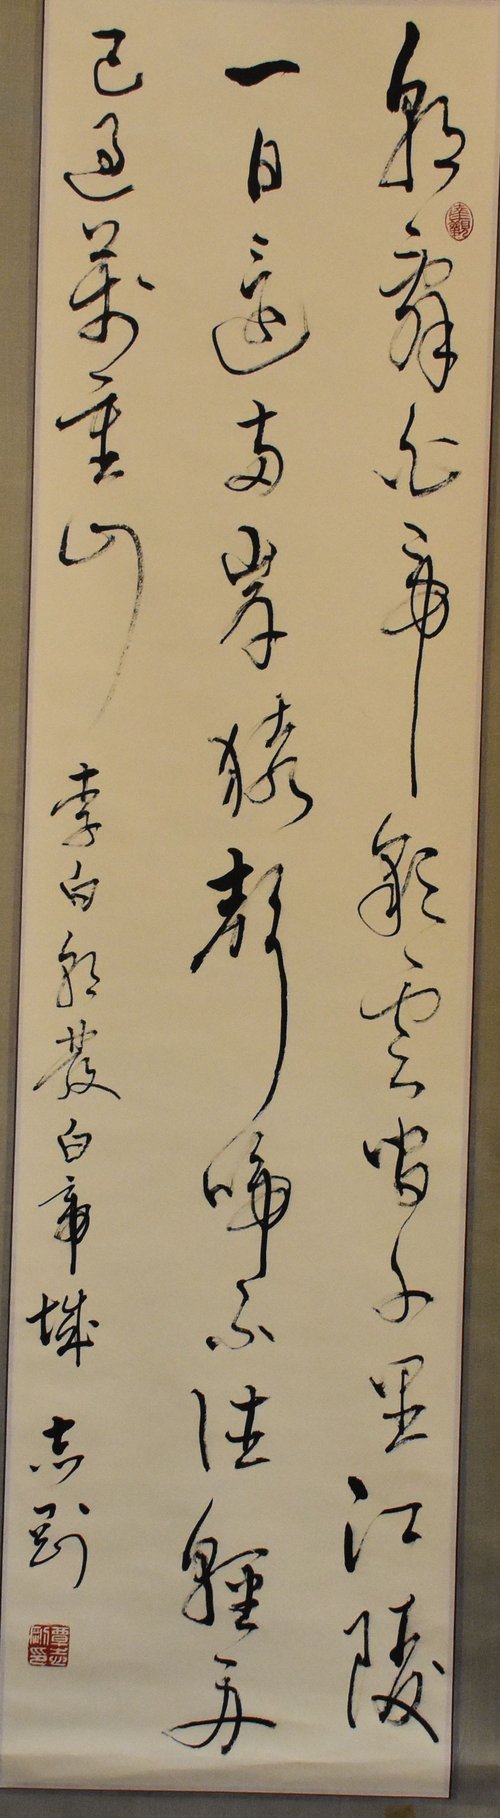 朝辭白帝彩雲間千里江陵
一日還兩岸猿聲啼不住輕舟
已過萬重山 李白朝發白帝城 志剛
達觀
覃志剛印